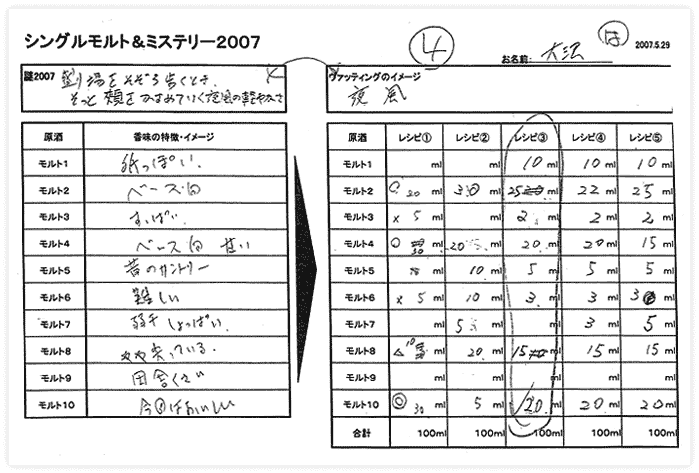 シングルモルト&ミステリー2007
④
お名前: 大沢
は
2007.5.29
謎2007 劇場をそぞろ歩くとき、
そっと頬をかすめていく夜風の軽やかさ
ヴァッティングのイメージ
夜風
原酒 香味の特徴・イメージ
モルト1 紙っぽい.
モルト2 ベース向
モルト3 すっぱい.
モルト4 ベース向 甘い
モルト5 昔のカントリー
モルト6 難しい
モルト7 若干しょっぱい.
モルト8 やや尖っている.
モルト9 田舎くさい
モルト10 今回はおいしい
原酒 レシピ① レシピ② レシピ③ レシピ④ レシピ⑤
モルト1 ml ml 10 ml 10 ml 10 ml
モルト2 ○ 20 ml 30 ml 25 ml 22 ml 25 ml
モルト3 × 5 ml ml 2 ml 2 ml 2 ml
モルト4 ○ 30 ml 20 ml 20 ml 20 ml 15 ml
モルト5 ml 10 ml 5 ml 5 ml 5 ml
モルト6 × 5 ml 10 ml 3 ml 3 ml 3 ml
モルト7 ml 5 ml ml 3 ml 5 ml
モルト8 △ 10 ml 20 ml 15 ml 15 ml 15 ml
モルト9 ml ml ml ml ml
モルト10 ◎ 30 ml 5 ml 20 ml 20 ml 20 ml
合計 100ml 100ml 100ml 100ml 100ml